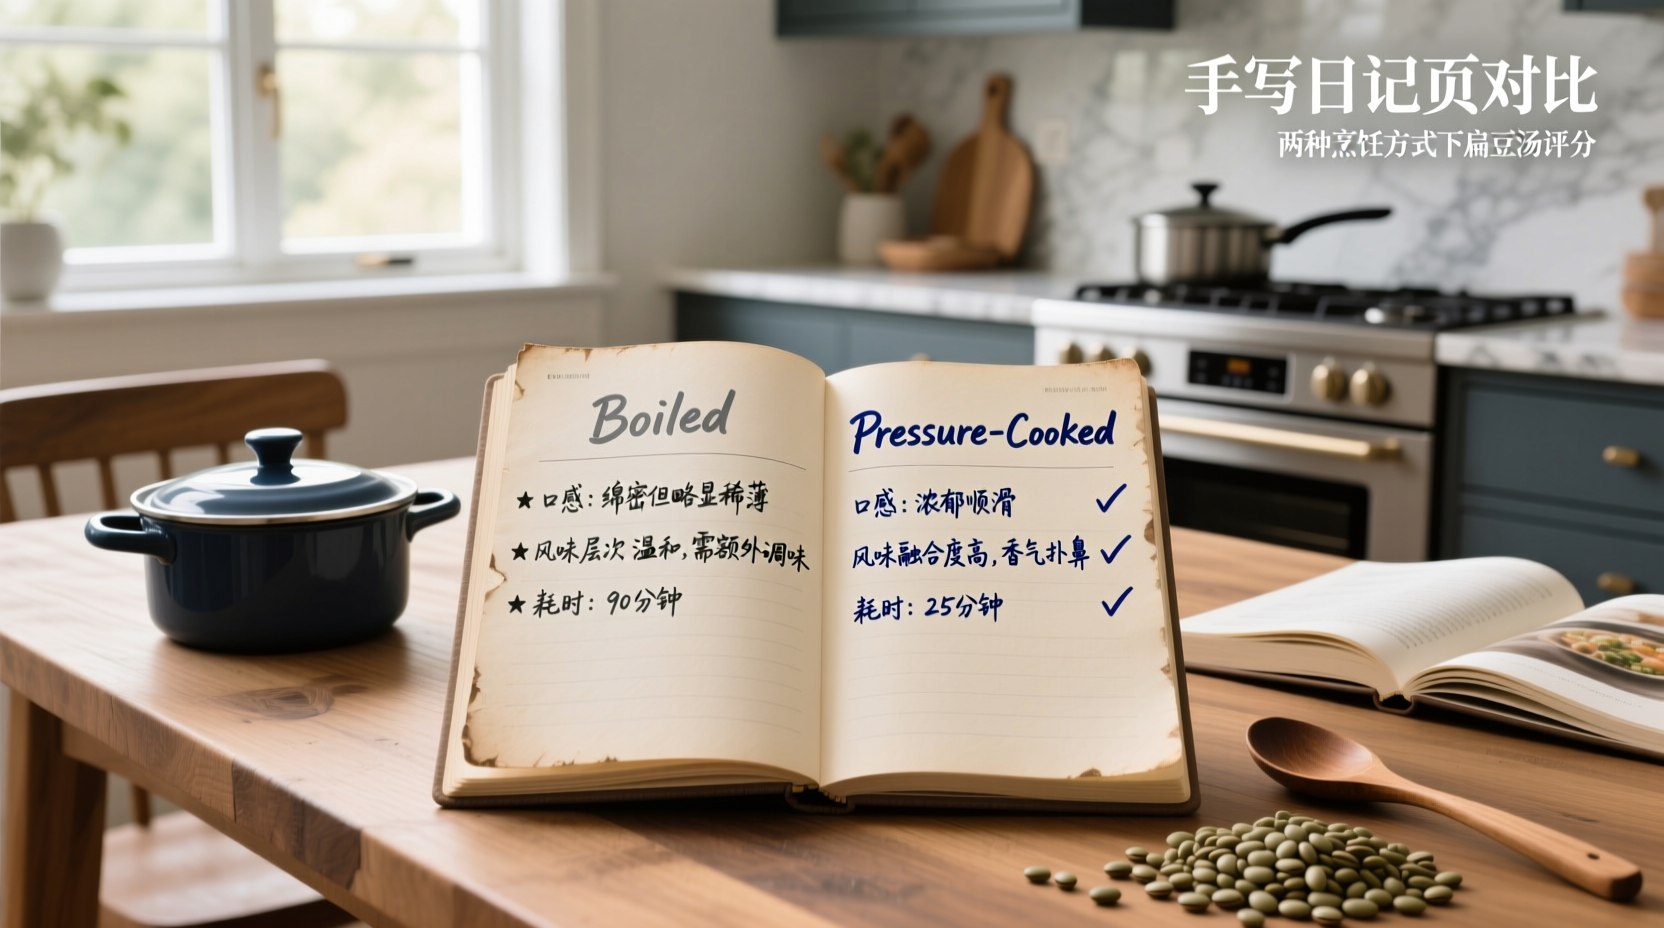 手写日记页对比
两种烹饪方式下扁豆汤评分
Boiled
★ 口感: 绵密但略显稀薄
★ 风味层次 温和, 需额外调味
★ 耗时: 90分钟
Pressure-Cooked
口感: 浓郁顺滑 ✓
风味融合度高, 香气扑鼻 ✓
耗时: 25分钟 ✓